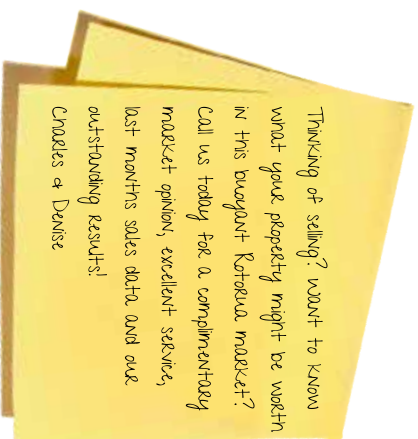 Thinking of selling? Want to know
what your property might be worth
in this buoyant Rotorua market?
Call us today for a complimentary
market opinion, excellent service,
last months sales data and our
outstanding results!
Charles & Denise